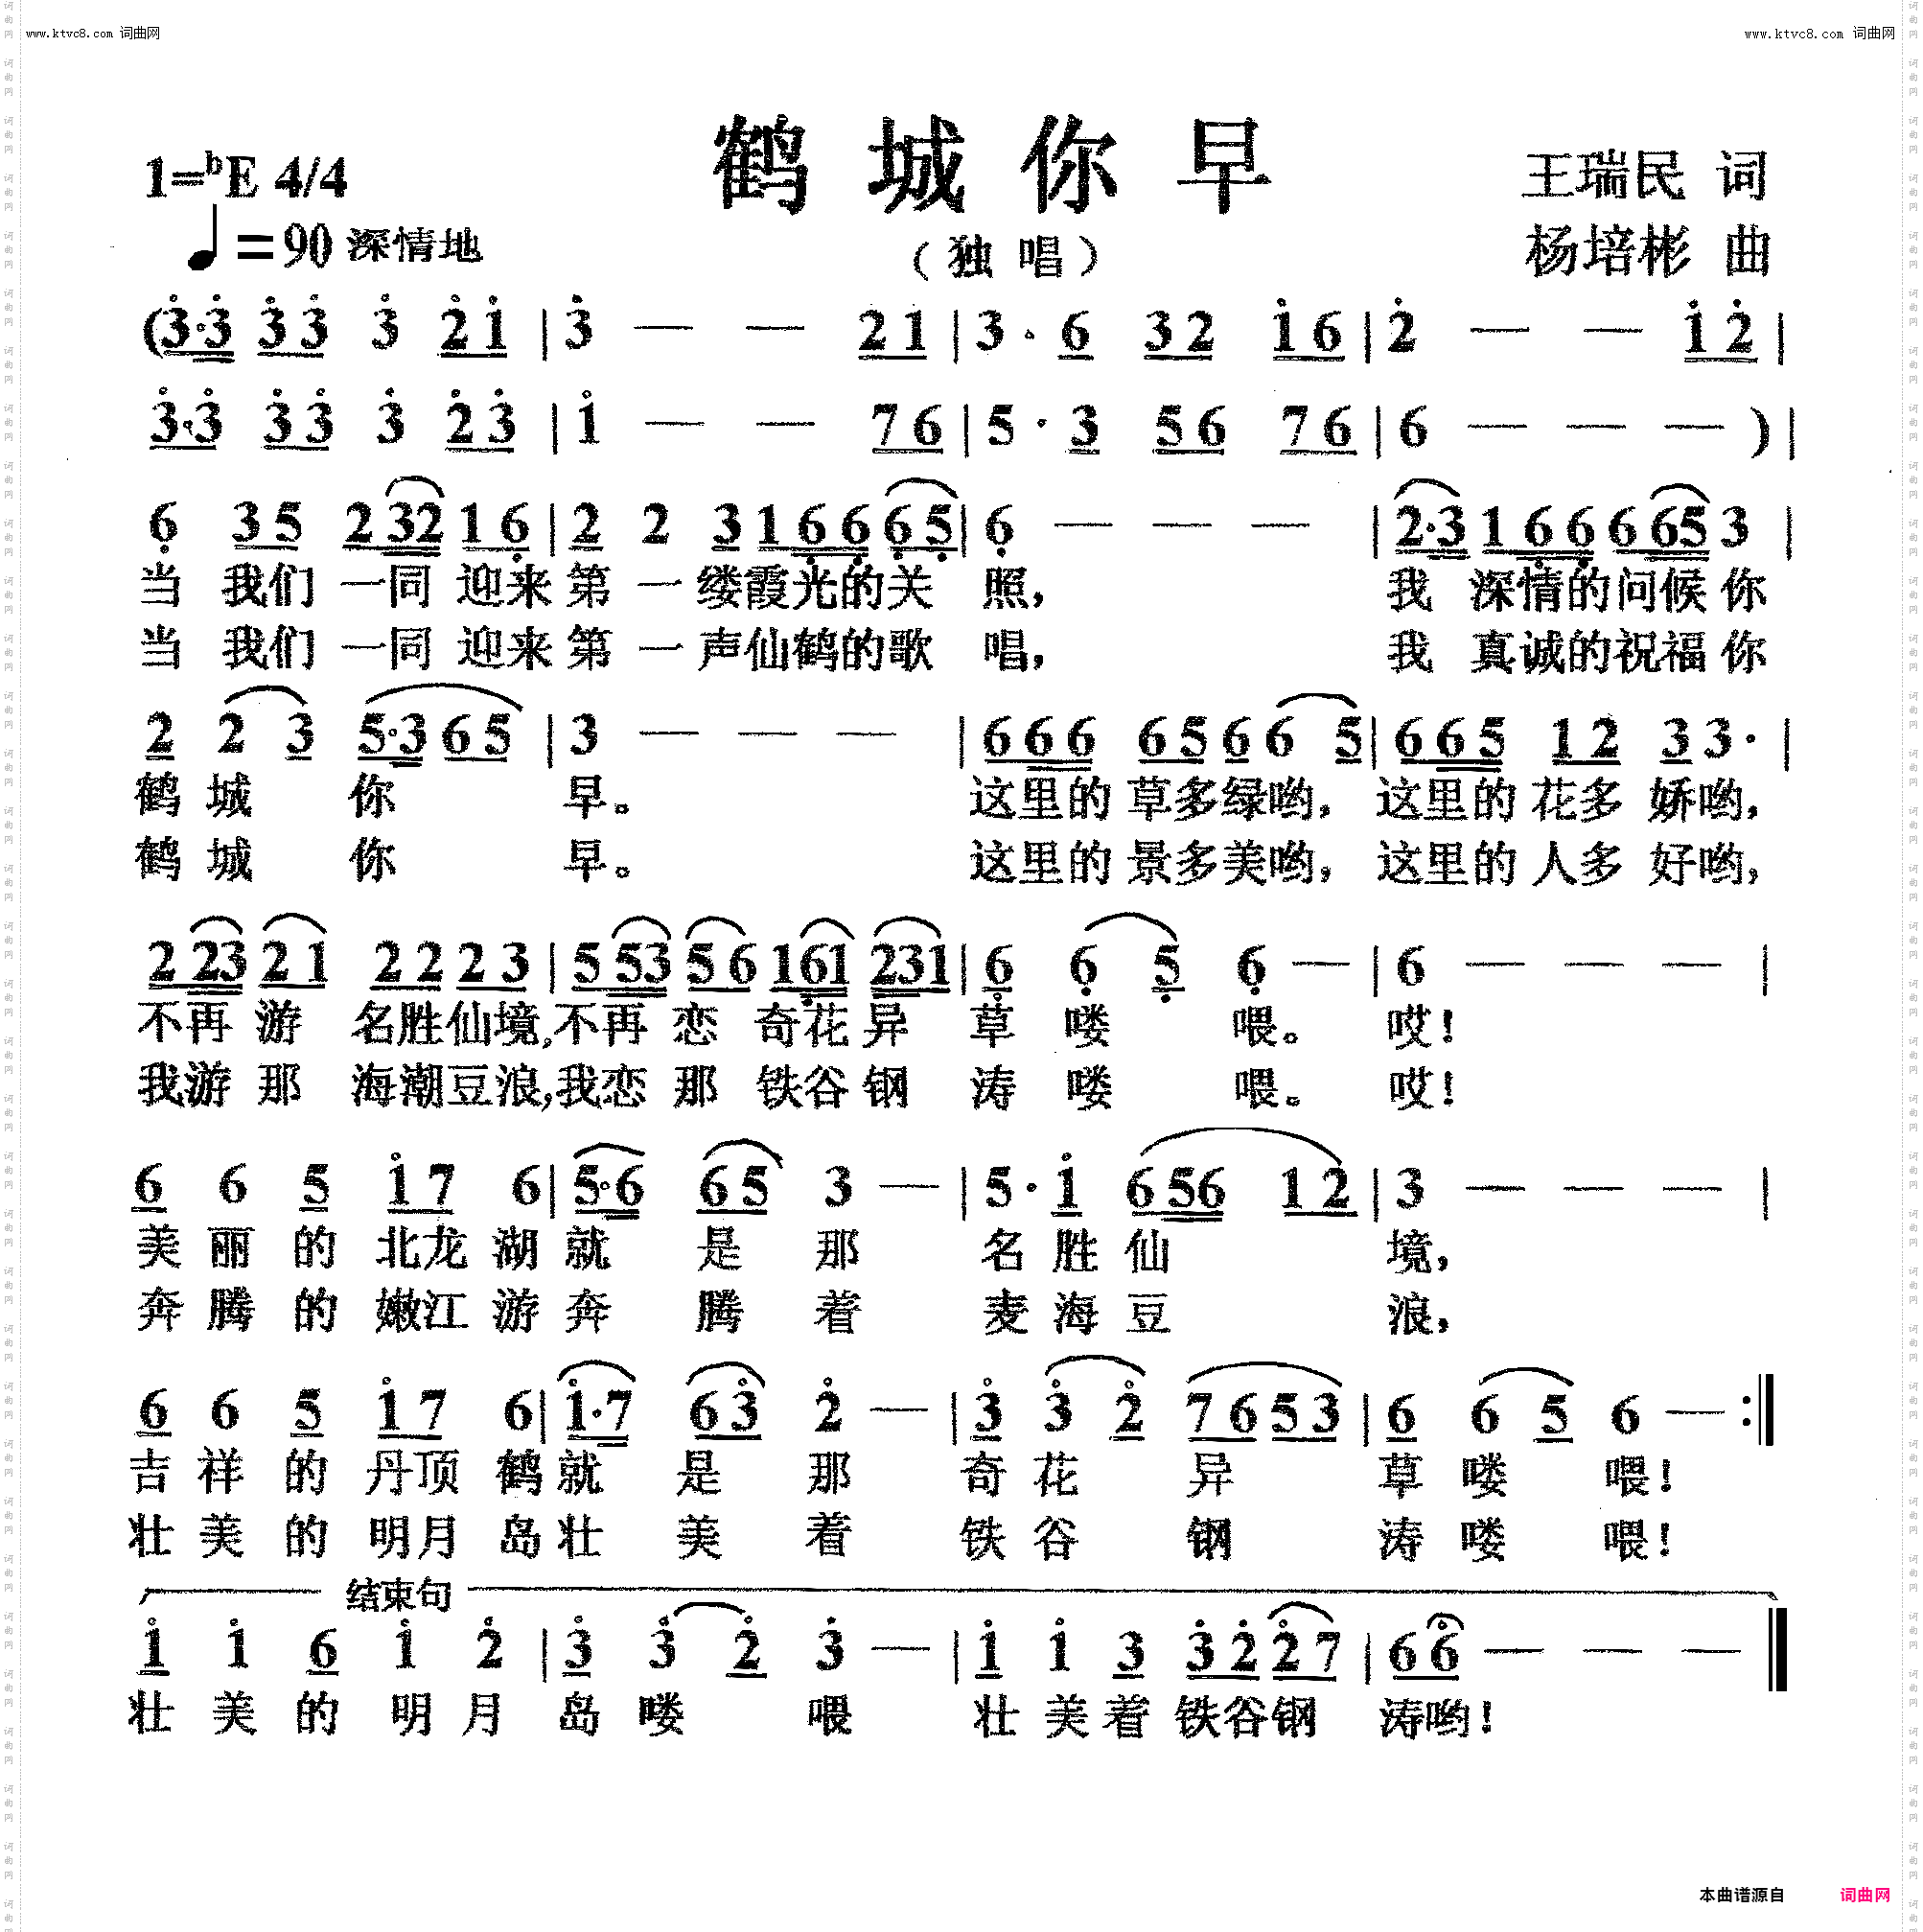 www.ktvc8.com 词曲网
www.ktvc8.com 词曲网
鹤城你早
1=bE 4/4
王瑞民 词
♩=90 深情地
（独 唱）
杨培彬 曲
(3·3 3 3 3 2 1 | 3 — — 2 1 | 3 · 6 3 2 1 6 | 2 — — 1 2 |
3·3 3 3 3 2 3 | 1 — — 7 6 | 5 · 3 5 6 7 6 | 6 — — — ) |
6 3 5 2 32 1 6 | 2 2 3 1 6 6 6 5 | 6 — — — | 2·3 1 6 6 6 65 3 |
当 我们 一同 迎来 第 一 缕霞光的关 照， 我 深情的问候你
当 我们 一同 迎来 第 一 声仙鹤的歌 唱， 我 真诚的祝福你
2 2 3 5·3 6 5 | 3 — — — | 6 6 6 6 5 6 6 5 | 6 6 5 1 2 3 3· |
鹤 城 你 早。 这里的 草多绿哟， 这里的 花多 娇哟，
鹤 城 你 早。 这里的 景多美哟， 这里的 人多 好哟，
2 23 2 1 2 2 2 3 | 5 53 5 6 161 231 | 6 6 5 6 — | 6 — — — |
不再 游 名胜仙境,不再 恋 奇花异 草 喽 喂。 哎！
我游 那 海潮豆浪,我恋 那 铁谷钢 涛 喽 喂。 哎！
6 6 5 1 7 6 | 5·6 6 5 3 — | 5 · 1 6 56 1 2 | 3 — — — |
美 丽 的 北龙 湖 就 是 那 名 胜 仙 境，
奔 腾 的 嫩江 游 奔 腾 着 麦 海 豆 浪，
6 6 5 1 7 6 | 1·7 6 3 2 — | 3 3 2 7 6 5 3 | 6 6 5 6 — :‖
吉 祥 的 丹顶 鹤 就 是 那 奇 花 异 草 喽 喂！
壮 美 的 明月 岛 壮 美 着 铁 谷 钢 涛 喽 喂！
结束句
1 1 6 1 2 | 3 3 2 3 — | 1 1 3 3 2 2 7 | 6 6 — — — ‖
壮 美 的 明 月 岛 喽 喂 壮 美 着 铁谷钢 涛哟！
本曲谱源自 词曲网